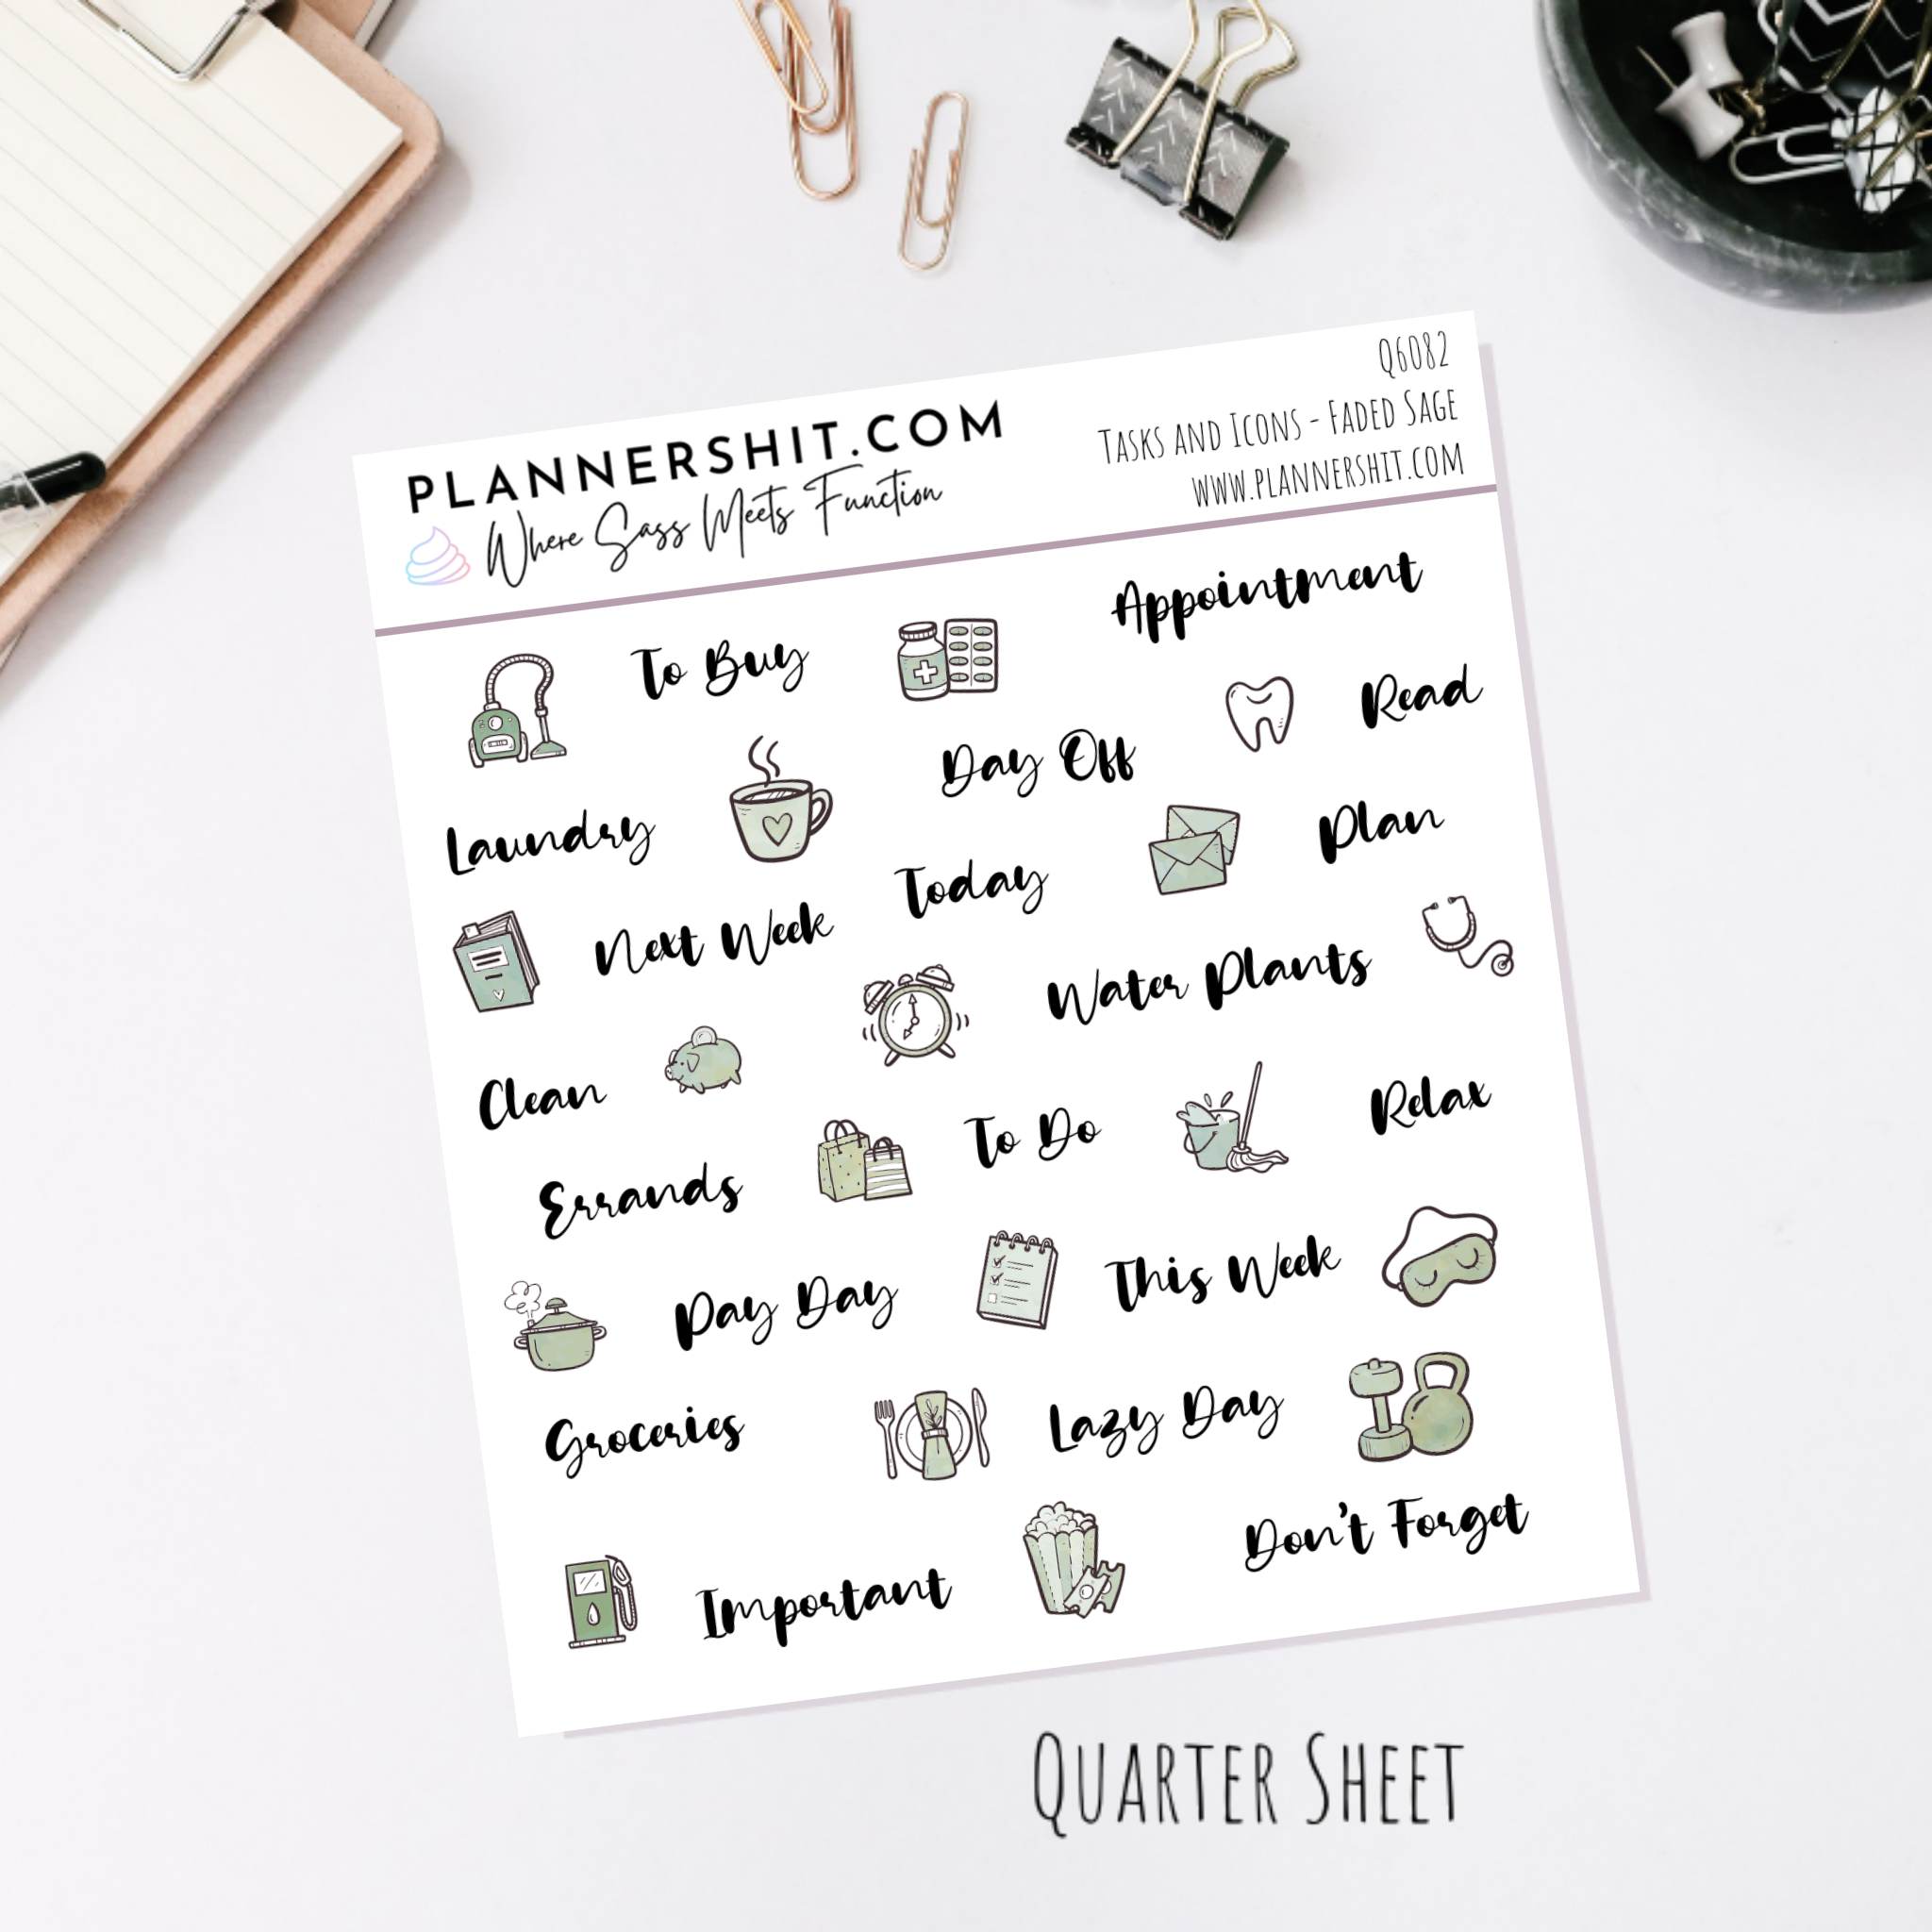 PLANNERSHIT.COM
Where Sass Meets Function
Q6082
Tasks and Icons - Faded Sage
www.plannershit.com
To Buy
Appointment
Laundry
Day Off
Read
Next Week
Today
Plan
Clean
Water Plants
Errands
To Do
Relax
Pay Day
This Week
Groceries
Lazy Day
Important
Don't Forget
Quarter Sheet